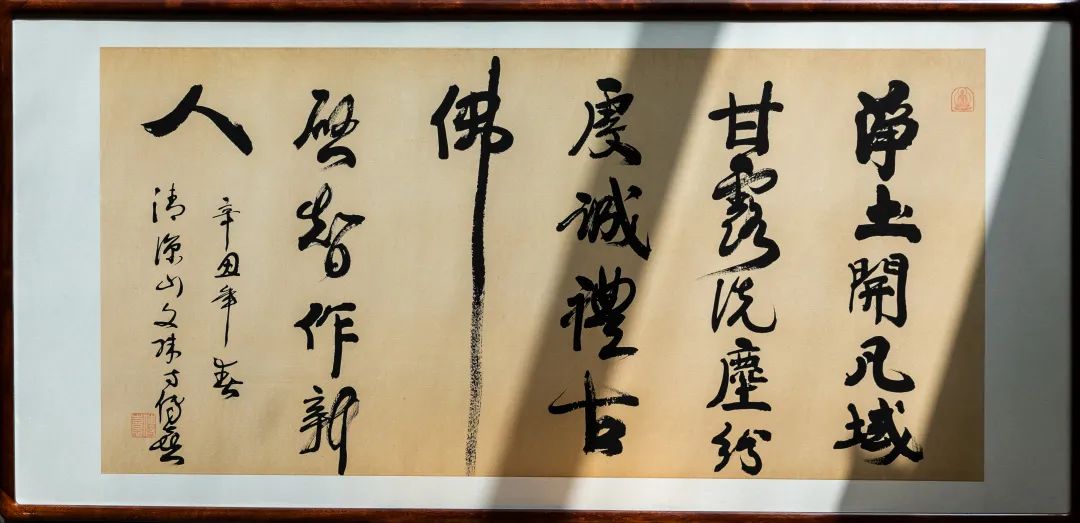 淨土開凡域
甘露洗塵紛
虔誠禮古
佛
啟智作新
人
辛丑年春
清涼山文殊寺傳